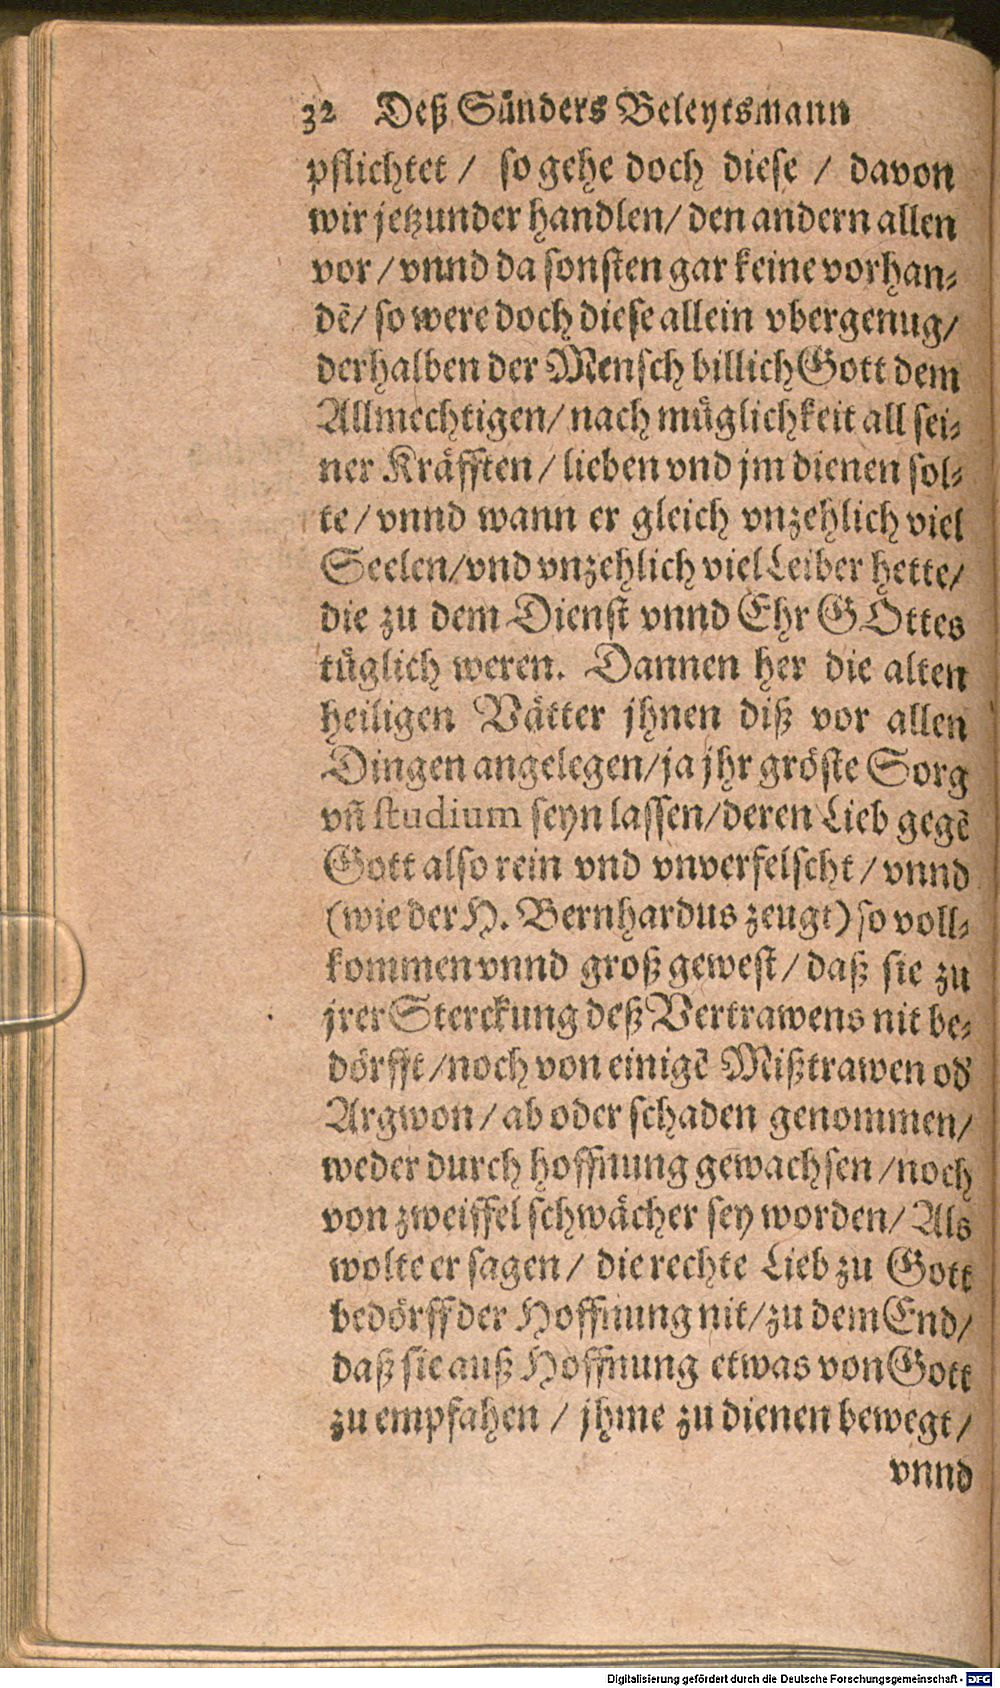 32 Deß Sünders Beleytsmann
pflichtet / so gehe doch diese / davon
wir jetzunder handlen/ den andern allen
vor / vnnd da sonsten gar keine vorhan-
dē/ so were doch diese allein vbergenug/
derhalben der Mensch billich Gott dem
Allmechtigen/ nach müglichkeit all sei-
ner Kräfften / lieben vnd jm dienen sol-
te / vnnd wann er gleich vnzehlich viel
Seelen/vnd vnzehlich viel Leiber hette/
die zu dem Dienst vnnd Ehr GOttes
tüglich weren. Dannen her die alten
heiligen Vätter jhnen diß vor allen
Dingen angelegen/ja jhr gröste Sorg
vñ studium seyn lassen/deren Lieb gegē
Gott also rein vnd vnverfelscht / vnnd
(wie der H. Bernhardus zeugt) so voll-
kommen vnnd groß gewest / daß sie zu
jrer Sterckung deß Vertrawens nit be-
dörfft /noch von einigē Mißtrawen od'
Argwon / ab oder schaden genommen/
weder durch hoffnung gewachsen /noch
von zweiffel schwächer sey worden/ Als
wolte er sagen / die rechte Lieb zu Gott
bedörff der Hoffnung nit/zu dem End/
daß sie auß Hoffnung etwas von Gott
zu empfahen / jhme zu dienen bewegt /
vnnd
Digitalisierung gefördert durch die Deutsche Forschungsgemeinschaft - DFG